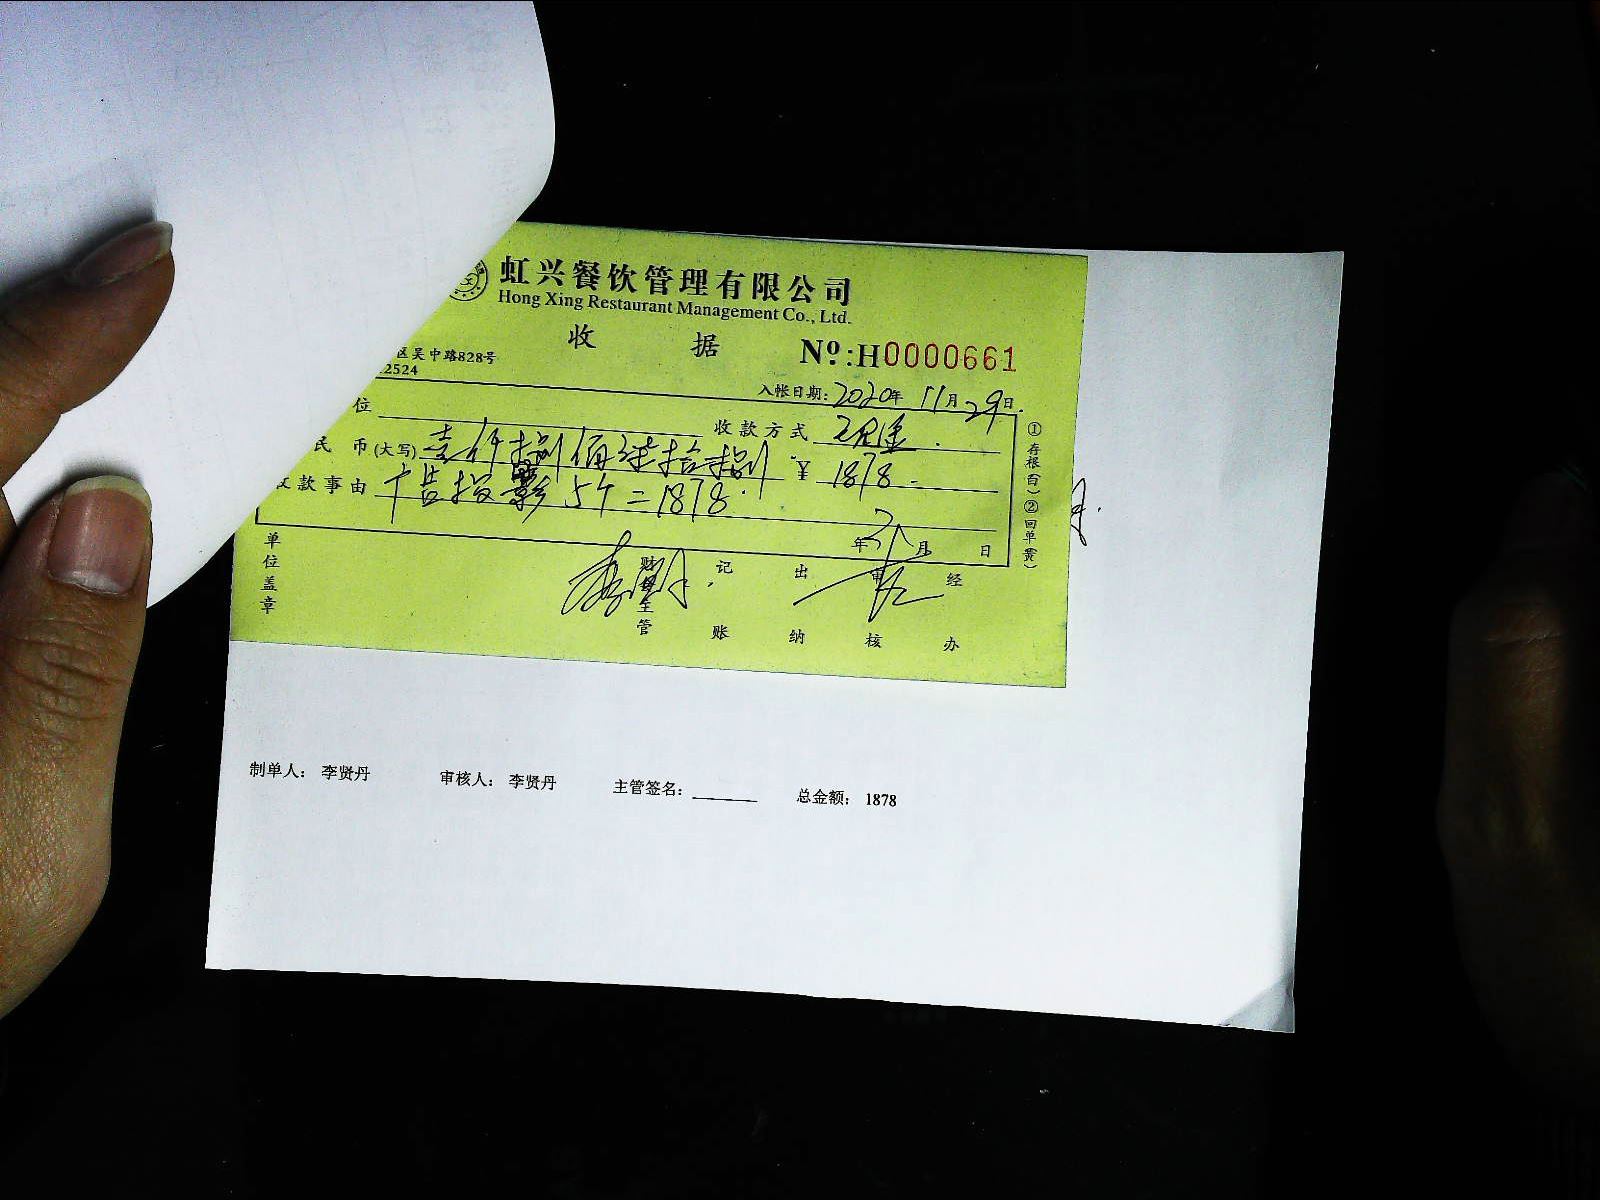 虹兴餐饮管理有限公司
Hong Xing Restaurant Management Co., Ltd.
收 据
Nº:H0000661
区吴中路828号
2524
入帐日期:2020年 11月29日.
位
收款方式 现金.
民 币(大写) 壹仟捌佰柒拾捌 ¥ 1878.-
收款事由 广告投影5个=1878.
年 月 日
①存根(白)②回单(黄)
单位盖章
财务主管 记账 出纳 审核 经办
制单人: 李贤丹 审核人: 李贤丹 主管签名: 总金额: 1878